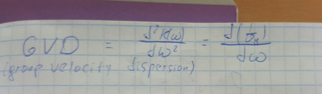 GVD = d²k(ω)/dω² = d(1/vₙ)/dω
(group velocity dispersion)